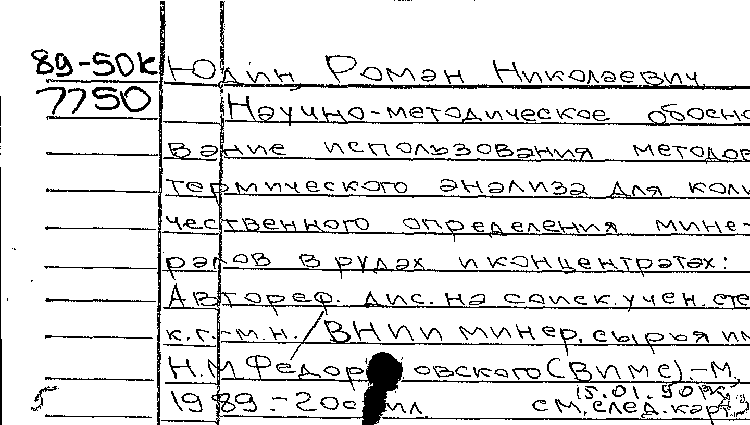 89-50к Юдин, Роман Николаевич
7750 Научно-методическое обосно
вание использования методов
термического анализа для коли
чественного определения мине-
ралов в рудах и концентратах:
Автореф. дис. на соиск. учен. сте
к.г.-м.н. / ВНИИ минер. сырья им
Н.М Федоровского (ВИМС) - М,
15.01.90
5 1989. - 20с ил. см. след. карт